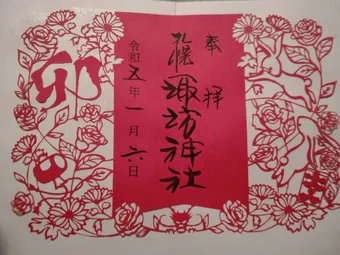 奉拝
札幌
諏訪神社
令和五年一月六日
卯